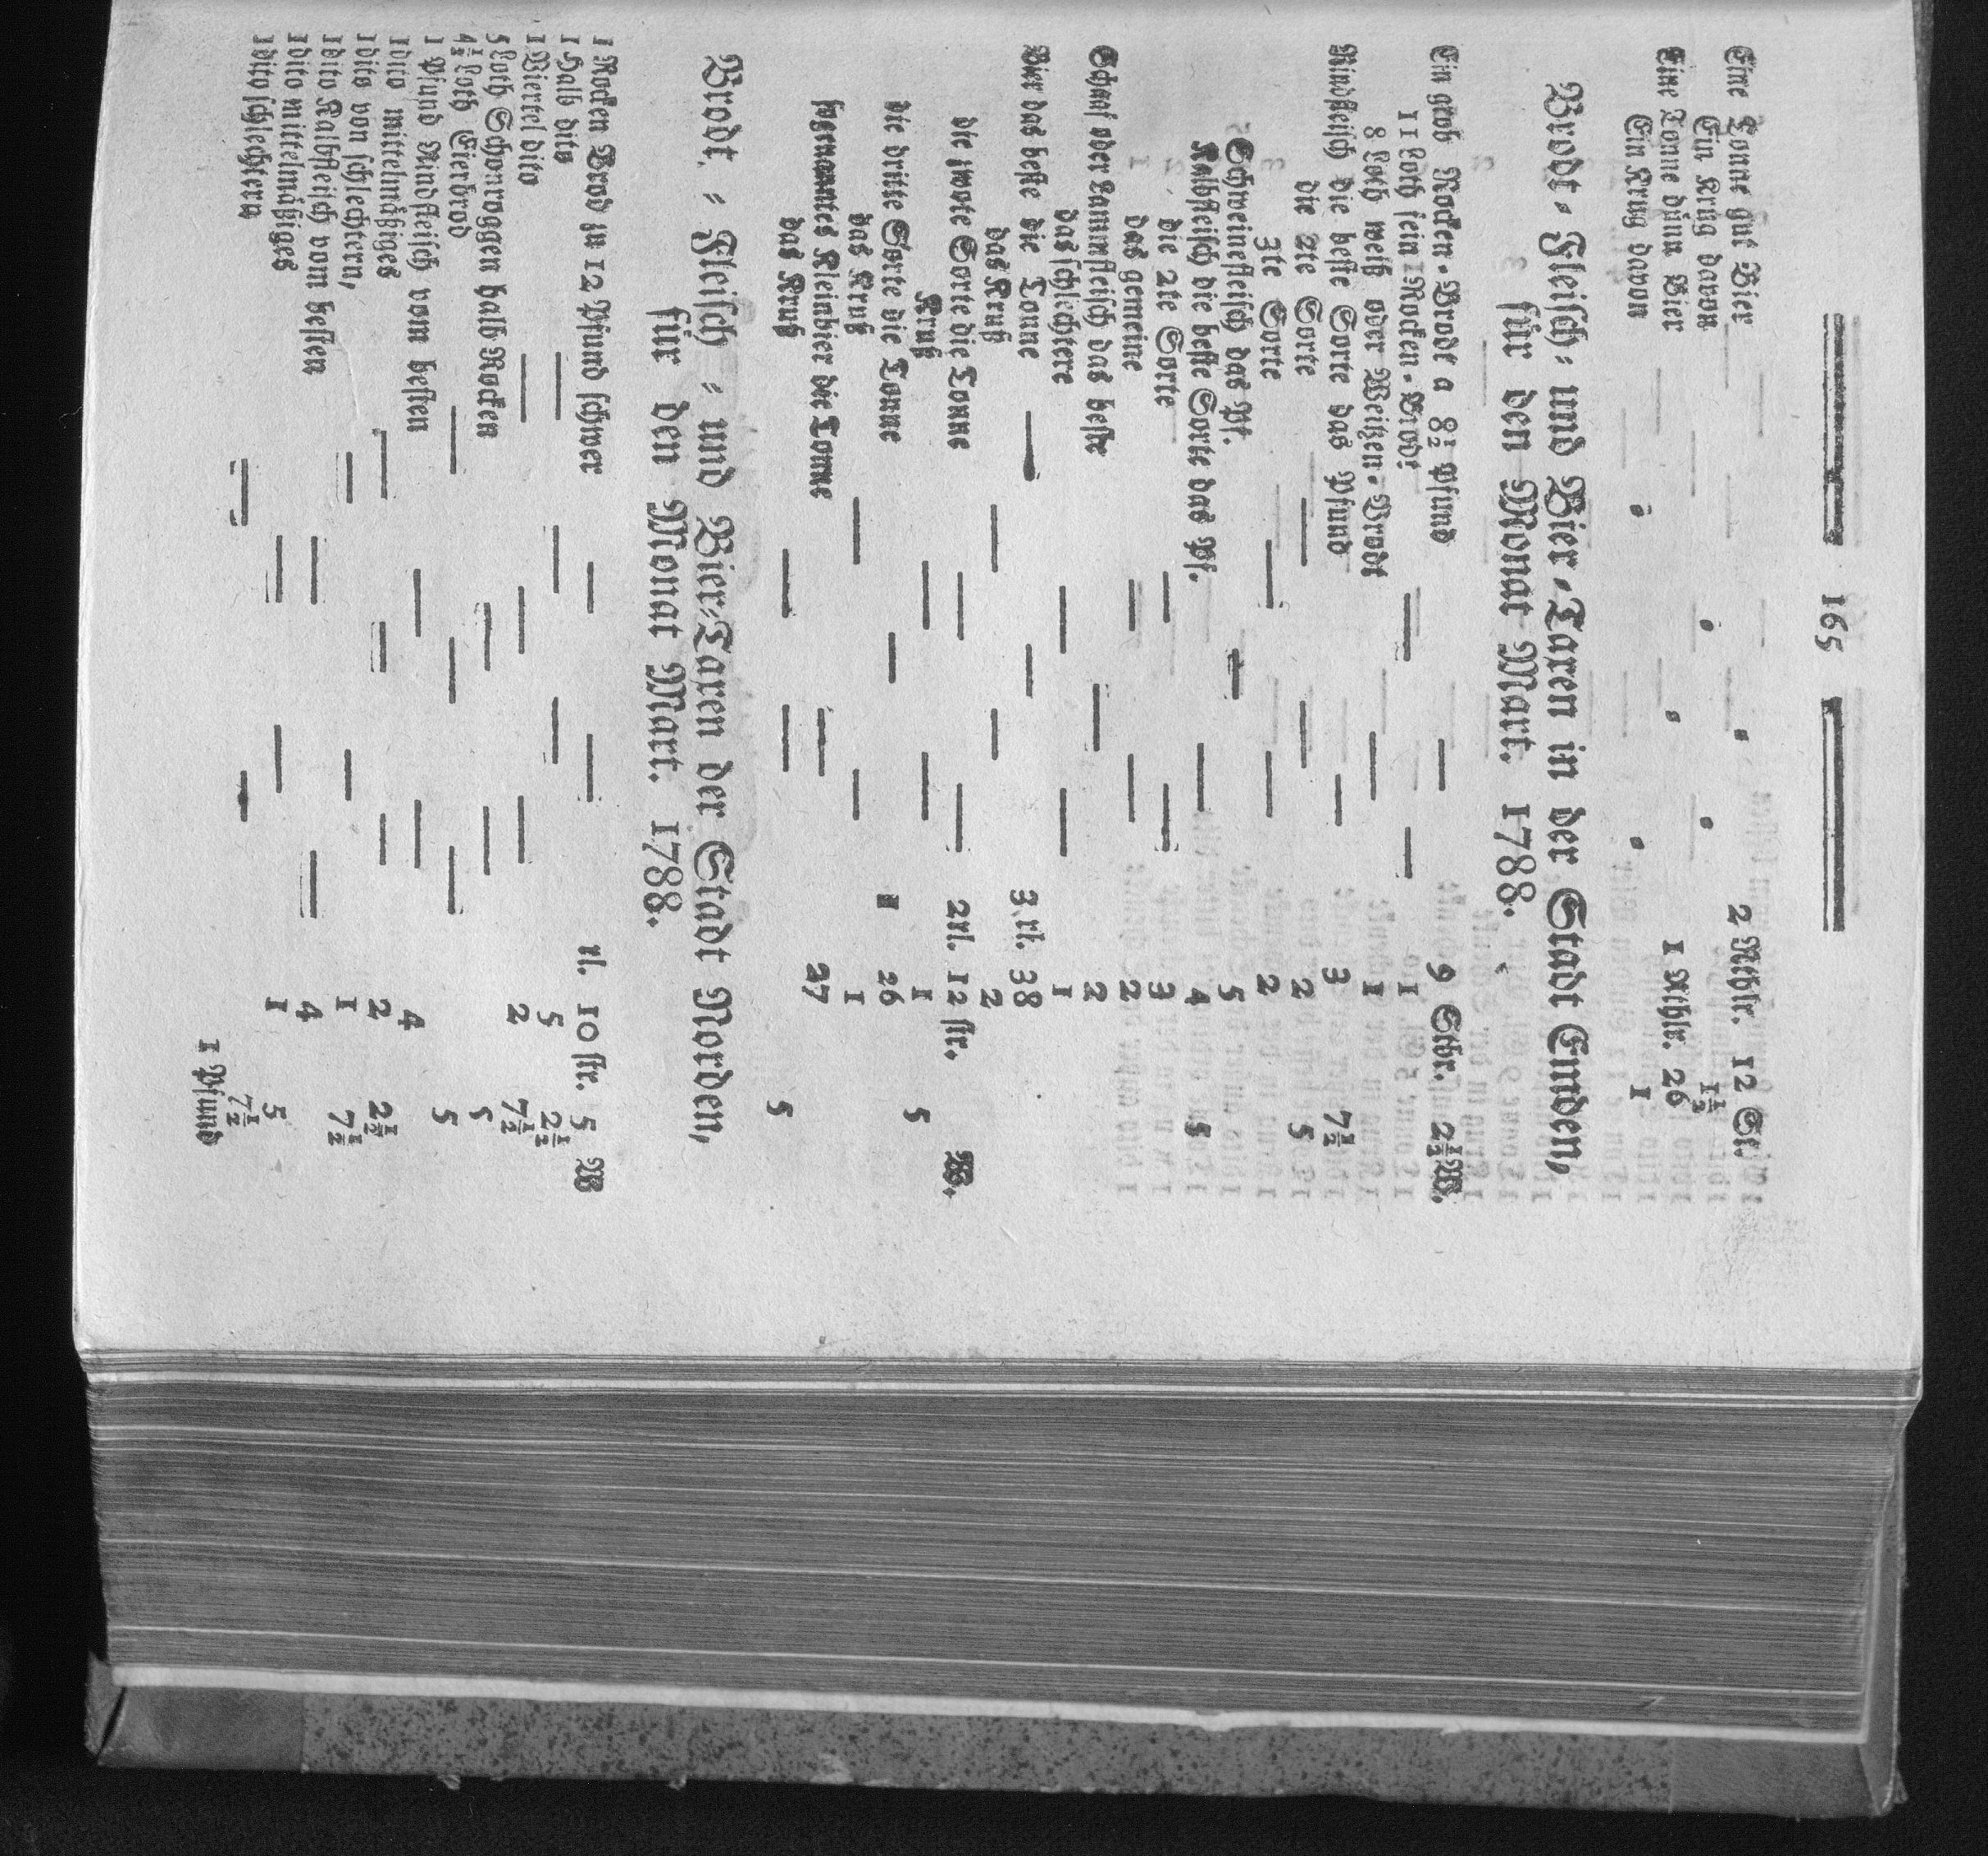 165
Eine Tonne gut Bier • • 2 Rthlr. 12 St.
Ein Krug davon • • 1½
Eine Tonne dünn Bier • 1 Rthlr. 26
Ein Krug davon • • 1
Brodt- Fleisch- und Bier-Taxen in der Stadt Emden,
für den Monat Mart. 1788.
Ein grob Rocken-Brodt a 8½ Pfund — 9 Stbr. 2½ W.
11 Loth fein Rocken-Brodt — — 1
8 Loth weiß oder Weitzen-Brodt — 1
Rindfleisch die beste Sorte das Pfund — 3 7½
die 2te Sorte — — 2 5
3te Sorte — — 2
Schweinefleisch das Pf. — 5
Kalbfleisch die beste Sorte das Pf. — 4 5
die 2te Sorte — — 3
das gemeine — — 2
Schaaf oder Lammfleisch das beste — 2
das schlechtere — — 1
Bier das beste die Tonne — — 3 rl. 38
das Krug — — 2
die zwote Sorte die Tonne — — 2rl. 12 str. W.
Krug — — 1 5
die dritte Sorte die Tonne — 26
das Krug — — 1
sogenanntes Kleinbier die Tonne — 27
das Krug — — 5
Brodt- Fleisch- und Bier-Taxen der Stadt Norden,
für den Monat Mart. 1788.
1 Rocken Brod zu 12 Pfund schwer — — rl. 10 str. 5 W
1 Halb dito — — — 5 2½
1 Viertel dito — — — 2 7½
5 Loth Schonroggen halb Rocken — — 5
4½ Loth Eierbrod — — — 5
1 Pfund Rindfleisch vom besten — — 4
1 dito mittelmäßiges — — — 2 2½
1 dito von schlechtern, — — 1 7½
1 dito Kalbfleisch vom besten — — 4
1 dito mittelmäßiges — — 1 5
1 dito schlechtern — — 7½
1 Pfund